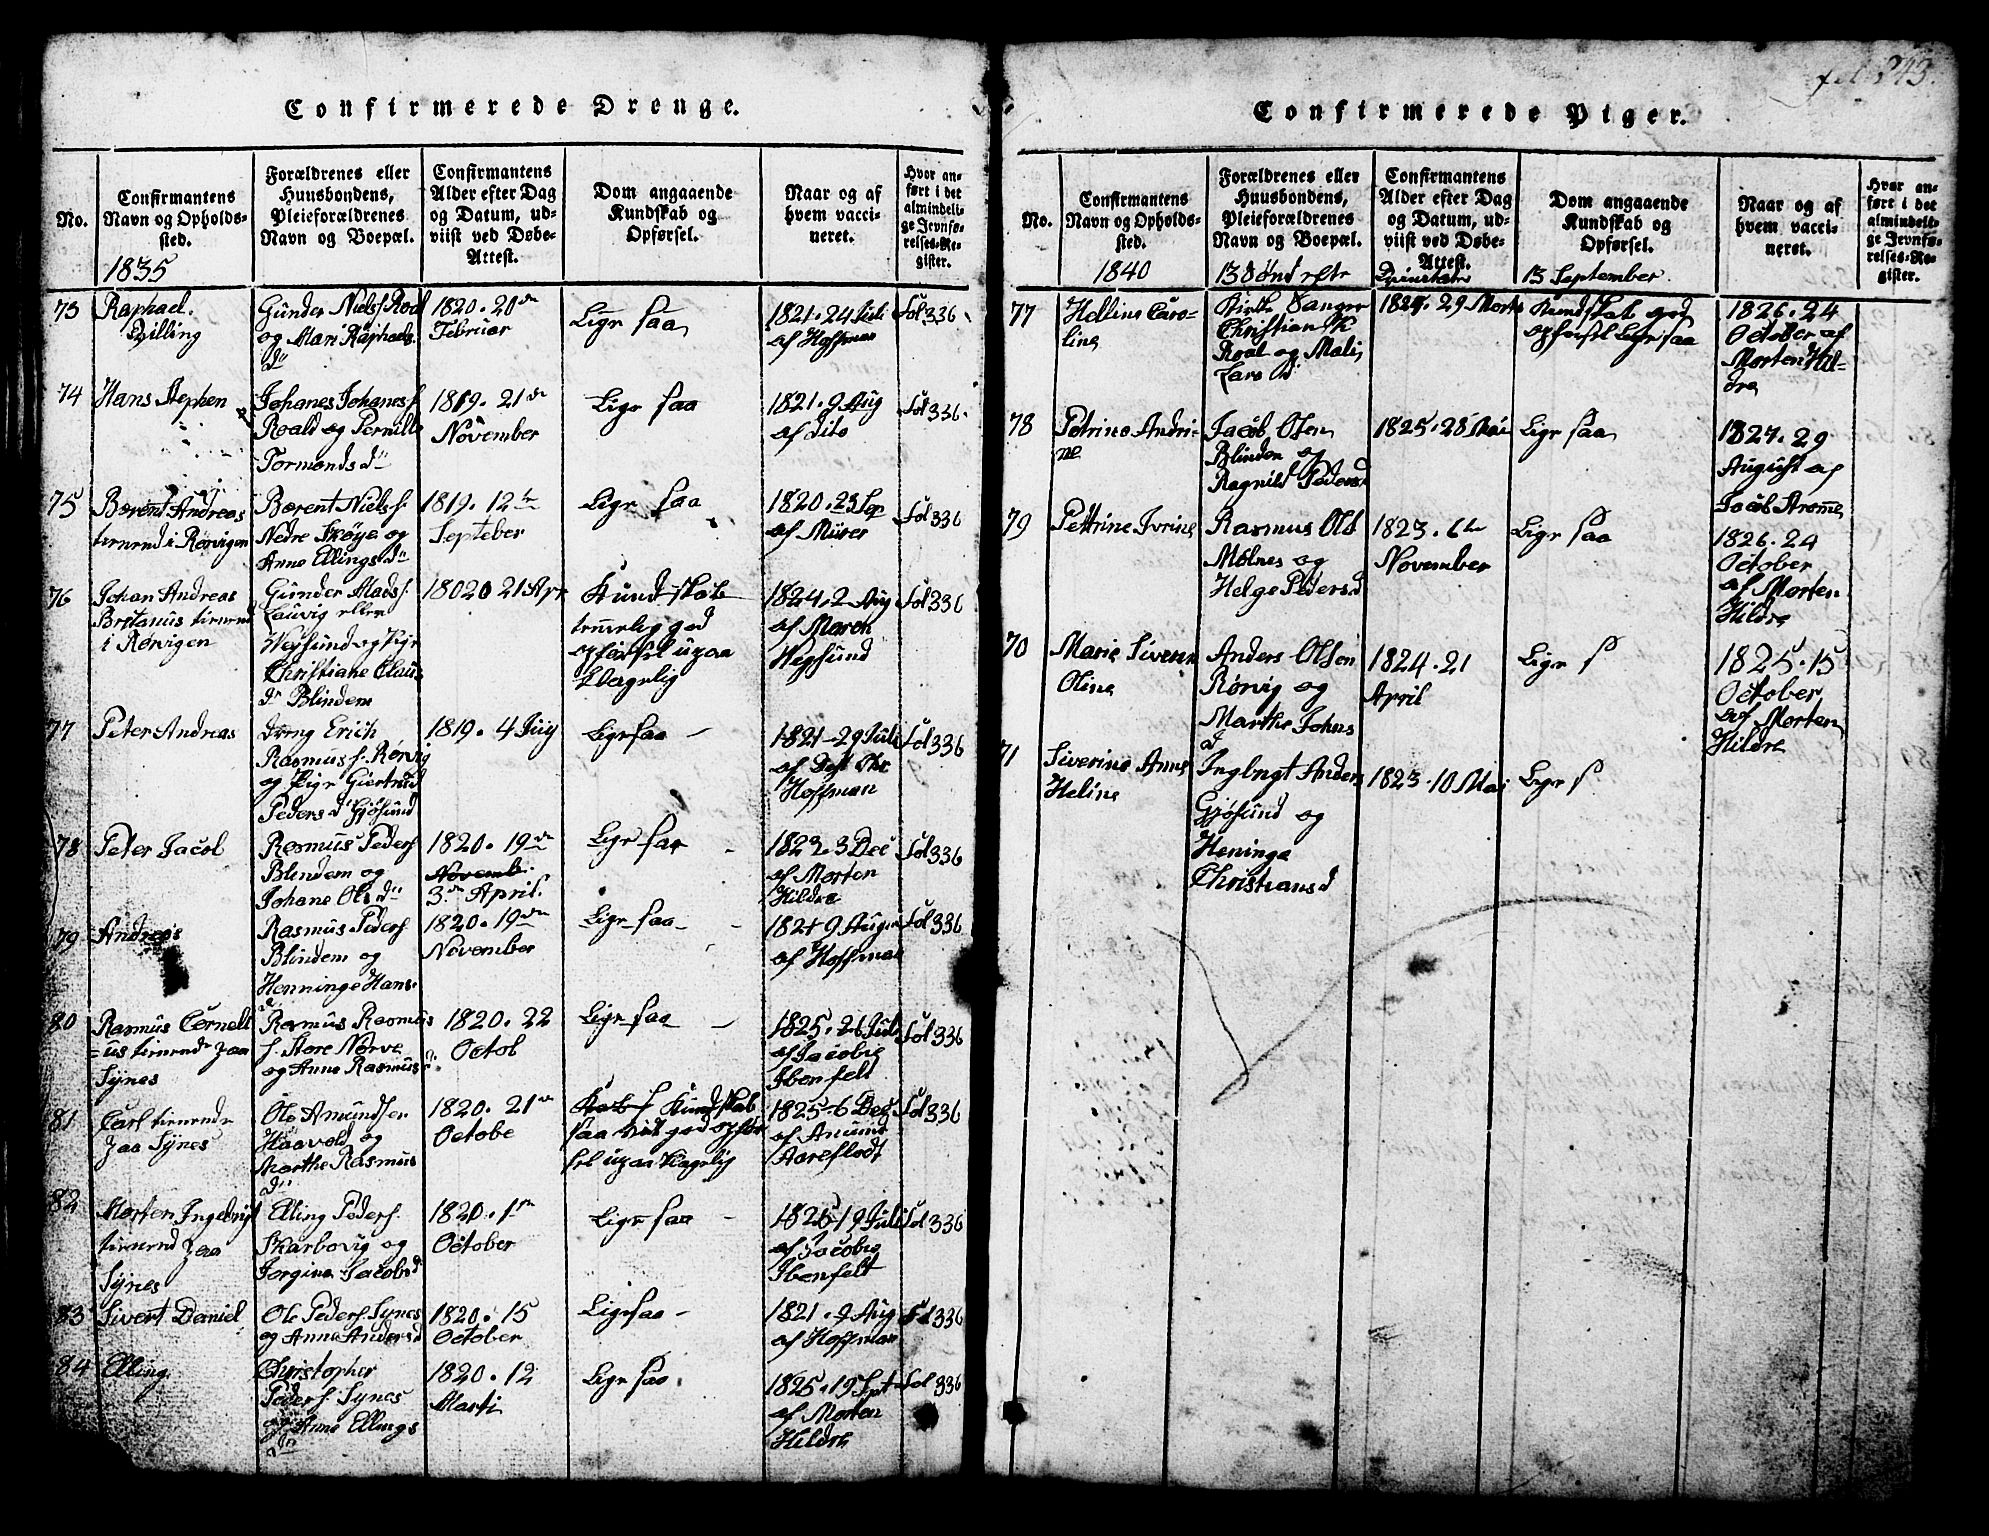 Confirmerede Drenge.
No.
Confirmantens
Navn og Opholds-
sted.
1835
Forældrenes eller
Huusbondens,
Pleieforældrenes
Navn og Boepæl.
Confirmantens
Alder efter Dag
og Datum, ud-
viist ved Døbe-
Attest.
Dom angaaende
Kundskab og
Opførsel.
Naar og af
hvem vacci-
neret.
Hvor an-
ført i det
almindeli-
ge Jevnfø-
relses-Re-
gister.
73
Raphael
Gunder Niels
og Mari Raphaels
dr
1820. 20de
Februar
Lige saa
1821. 24 Juli
af Hoffman
Fol 336
74
Hans Stephen
Johanes Johanes f.
Roald og Pernille
Tormonds dr
1819. 21de
November
Lige saa
1821. 9 Aug
af dito
Fol 336
75
Bærent Andreas
tienend i Rørvigen
Bærent Niels f.
Nedre Skøye og
Anne Ellings dr
1819. 12te
Septeber
Lige saa
1820. 23 Sep
af Mürer
Fol 336
76
Johan Andreas
tienend
i Rørvigen
Gunder Mads f.
Lauvig eller
Wegsund og Pige
Christiane Claus
dr Blindem
18020 21 Apr
Kundskab
temelig god
opførsel upaa
klagelig
1824. 2 Aug
af
Wegsund
Fol 336
77
Peter Andreas
dreng Erich
Rasmus f. Rørvig
og Pige Giertrud
Peders d Gjøsund
1819. 4 Juy
Lige saa
1821 29 Juli
af
Hoffman
Fol 336
78
Peter Jacob
Rasmus Peders f
Blindem og
Johane Ols dr
1820. 19de
Novemb.
3de April.
Lige saa
1823. 3 Dec
af Morten
Hildre
Fol 336
79
Andreas
Rasmus Peders f
Blindem og
Henninge Hans
d.
1820. 19de
November
Lige saa
1821 9 Aug
af Hoffman
Fol 336
80
Rasmus Cornell
=us tienende paa
Synes
Rasmus Rasmus
f. Store Nørve
og Anne Rasmus
dr
1820. 22
Octob
Lige saa
1825. 26 Juli
af Jacobie
Ibenfelt
Fol 336
81
Carl tienende
paa Synes
Ole Amundsen
Haavold og
Marthe Rasmus
dr
1820. 21de
Octobe
Kundskab
saa vidt god opfør
sel upaa klagelig
1825. 6 Dec
af Amund
Aareflodt
Fol 336
82
Morten Ingebrigt
tienend paa
Synes
Elling Peders f.
Skarbøvig og
Jorgine Jacobs d
1820. 1te
October
Lige saa
1825 19 Juli
af Jacobie
Ibenfelt
Fol 336
83
Sivert Daniel
Ole Peders f. Synes
og Anne Anders d
1820. 15
October
Lige saa
1821. 9 Aug
af Hoffman
Fol 336
84
Elling
Christopher
Peders f. Synes
og Anne Ellings
dr
1820. 12
Marti
Lige saa
1825. 19 Spt
af Morten
Hildre
Fol 336
fol 243.
Confirmerede Piger.
No.
Confirmantens
Navn og Opholds-
sted.
1840
Forældrenes eller
Huusbondens,
Pleieforældrenes
Navn og Boepæl.
13 Sønd efte
Confirmantens
Alder efter Dag
og Datum, ud-
viist ved Døbe-
Attest.
Dom angaaende
Kundskab og
Opførsel.
13 September
Naar og af
hvem vacci-
neret.
Hvor an-
ført i det
almindeli-
ge Jevnfø-
relses-Re-
gister.
77
Helline Caro-
line
Kirke Sanger
Christian
Roal og Mali
Lars d
29 Marts
Kundskab god
opførsel Lige saa
1826. 24
October af
Morten Hil-
dre
78
Petrine Andri-
ne
Jacob Olsen
Blindem og
Ragnild Peders
1825. 28 Mai
Lige saa
1827. 29
August af
Jacob Strømme
79
Pettrine Ivrine
Rasmus Ols
Molnes og
Helge Peders d
1823. 6te
November
Lige saa
1826. 24
October
af Morten
Hildre
70
Marie
Oline
Anders Olsen
Rørvig og
Marthe Johns
d
1824. 21
April
Lige s
1825. 15
October
af Morten
Hildre
71
Siverine Anne
Heline
Ingbrigt Anders
Gjøsund og
Heninge
Christians d
1823. 10 Mai
Lige s